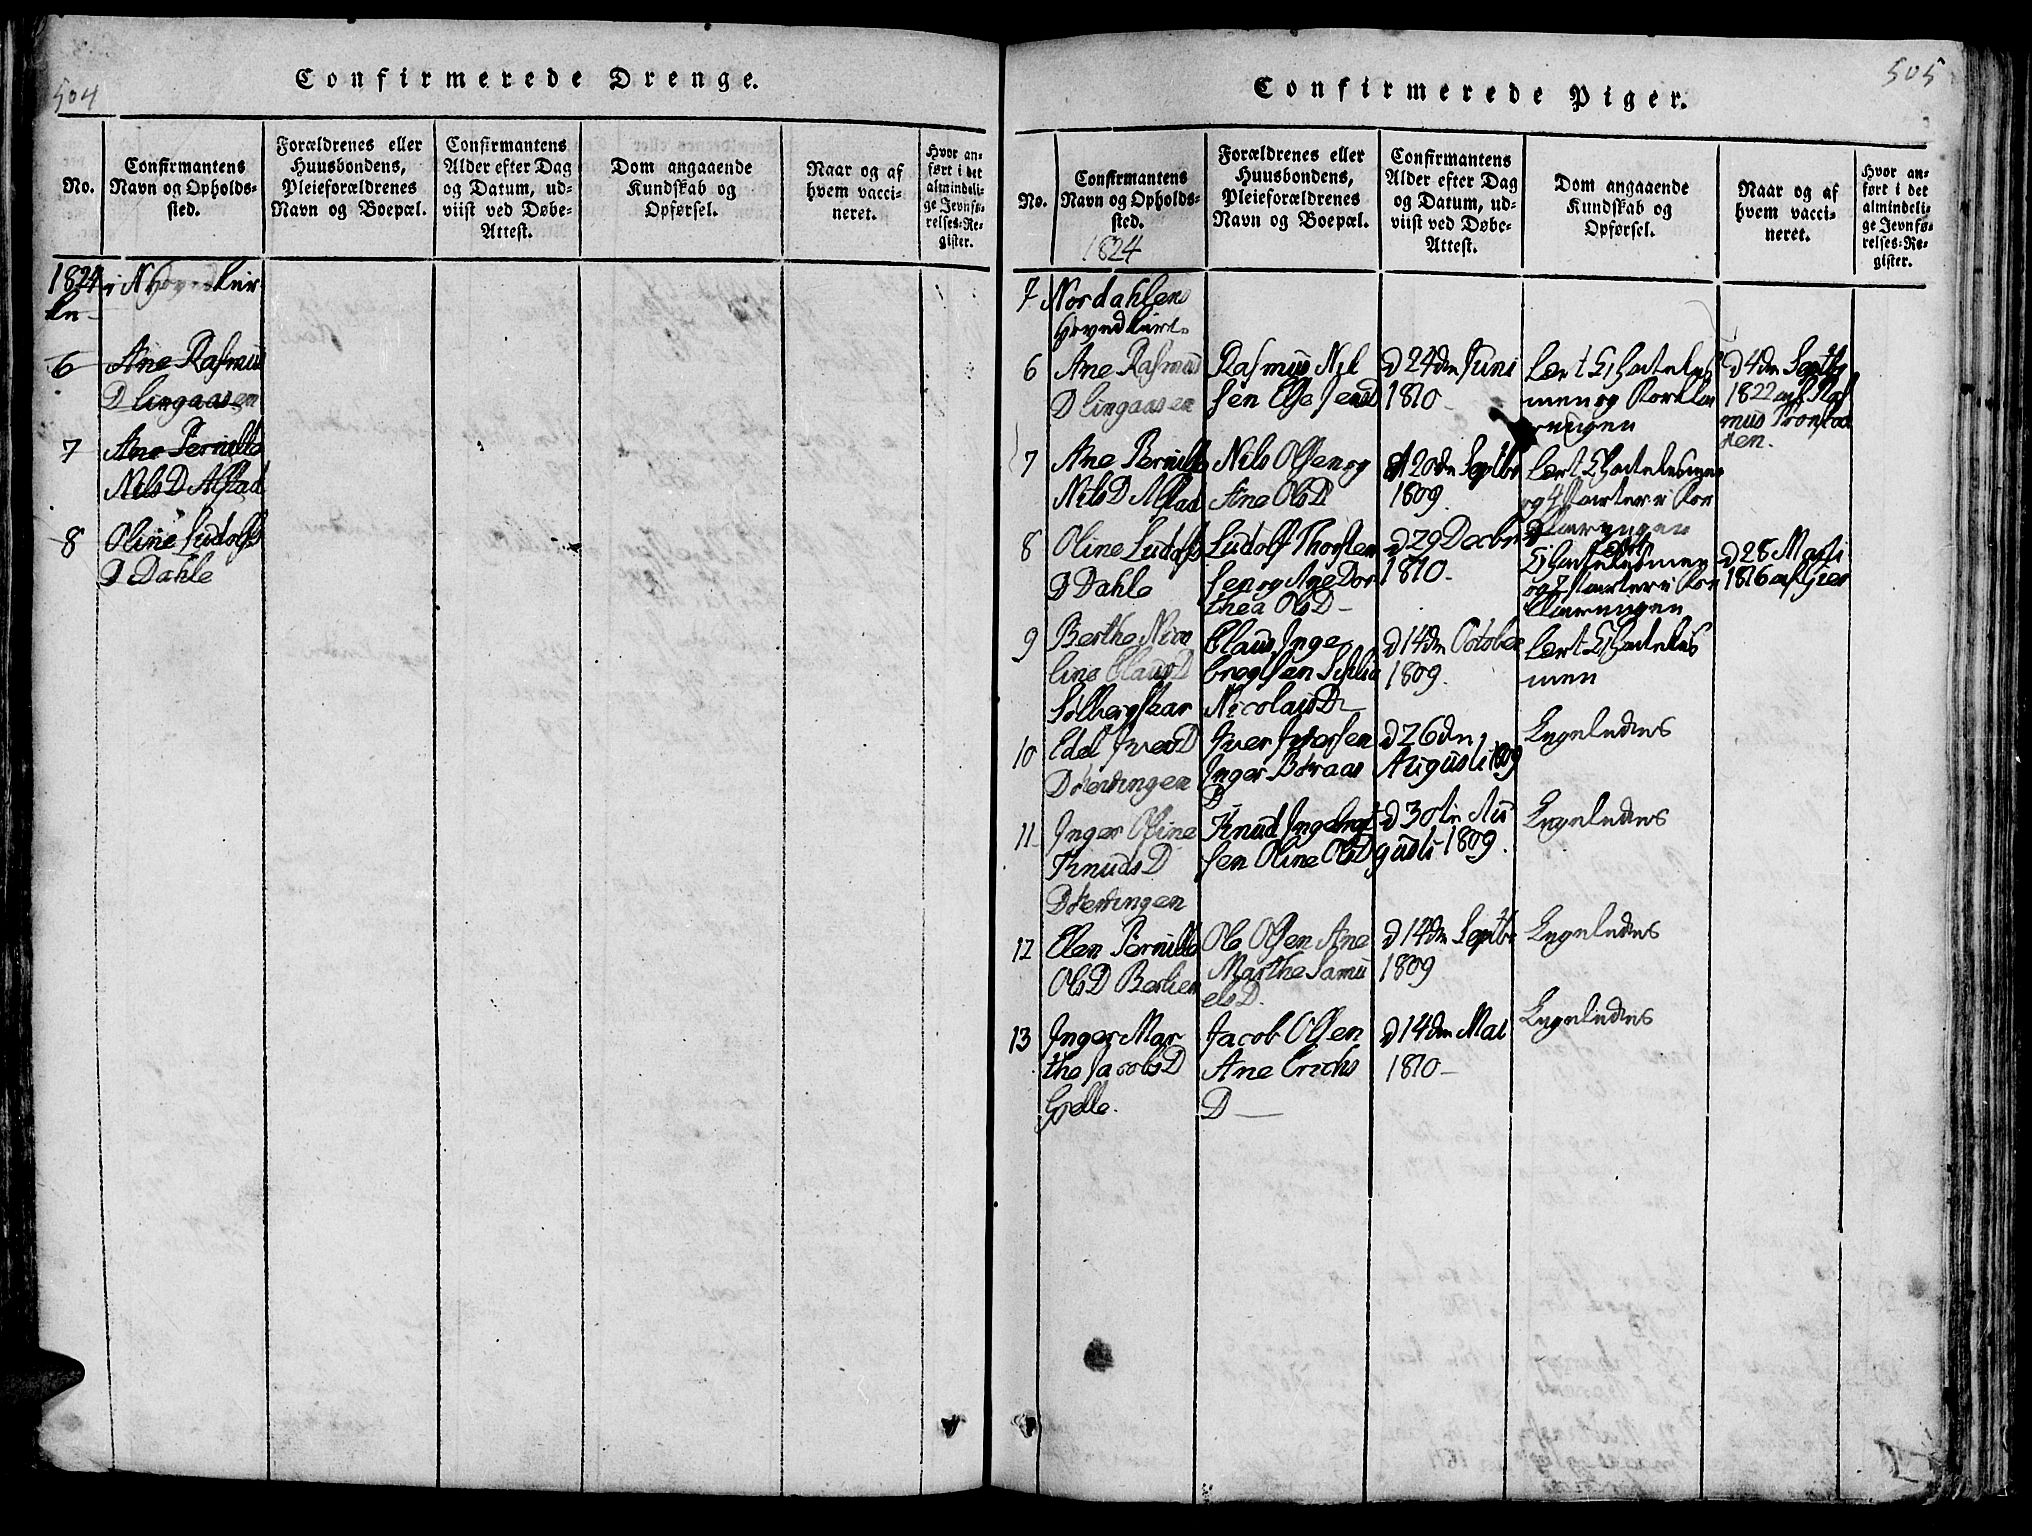 504
Confirmerede Drenge.
No.
Confirmantens
Navn og Opholds-
sted.
Forældrenes eller
Huusbondens,
Pleieforældrenes
Navn og Boepæl.
Confirmantens
Alder efter Dag
og Datum, ud-
viist ved Døbe-
Attest.
Dom angaaende
Kundskab og
Opførsel.
Naar og af
hvem vacci-
neret.
Hvor an-
ført i det
almindeli-
ge Jevnfø-
relses-Re-
gister.
1824 i N Hovedkir
ken
6 Ane Rasmus
D lingaasen
7 Ane Pernille
Nils D Alstad
8 Oline Ludolfs
D Dahle
505
Confirmerede Piger.
No.
Confirmantens
Navn og Opholds-
sted.
1824
Forældrenes eller
Huusbondens,
Pleieforældrenes
Navn og Boepæl.
Confirmantens
Alder efter Dag
og Datum, ud-
viist ved Døbe-
Attest.
Dom angaaende
Kundskab og
Opførsel.
Naar og af
hvem vacci-
neret.
Hvor an-
ført i det
almindeli-
ge Jevnfø-
relses-Re-
gister.
7 Nordahlens
Hovedkirke
6 Ane Rasmus
D lingaasen
Rasmus Nil
sen Else JensD
d 24de Juni
1810
Lært Chatekes
men og Forkla
ringen
d 4de Septbr
1822 af Ras
mus Tronsta
ten.
7 Ane Pernille
Nils D Alstad
Nils Olsen og
Ane OlsD
d 20de Septbr
1809
Lært Chatekesmen
og 4 Parter i For
klaringen
8 Oline Ludolfs
D Dahle
Ludolf Thorsten
sen og Ane Dor
thea OlsD
d 29 Decbr
1810
Chatekesmen
og 2 Parter i For
klaringen
d 28 Marti
1816 af Gier
9 Berthe Nico
line ClausD
Solbergskar
Claus Inge
brogtsen
NicolausD
d 14de October
1809.
Lært Chatekes
men
10 Edel IversD
Døkerdingen
Iver Iversen
Inger Boraas
D
d 26de
Augusti 1809
Ligeledes
11 Inger Oline
KnudsD
Døkerdingen
Knud Ingebrogt
sen Oline OlsD
d 30te Au
gusti 1809.
Ligeledes
12 Elen Pernille
OlsD Berlien
Ole Olsen Ane
Marthe Samu
elsD.
d 14de Septbr
1809
Ligeledes
13 Inger Mar
the JacobsD
Gjelle.
Jacob Olsen
Ane Erichs
D
d 14de Mai
1810
Ligeledes